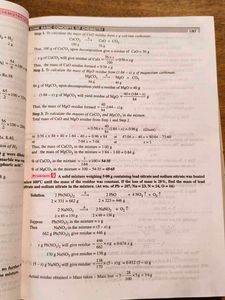 SOME BASIC CONCEPTS OF CHEMISTRY
1/87
Step 1. To calculate the mass of CaO residue from x g calcium carbonate.
CaCO₃ → CaO + CO₂
100 g 56 g
Thus, 100 g of CaCO₃ upon decomposition give a residue of CaO = 56 g
∴ x g of CaCO₃ will give residue of CaO = 56/100 × x = 0.56 x g
Thus, the mass of CaO residue formed = 0.56 x g
Step 2. To calculate the mass of MgO residue from (1.84 – x) g of magnesium carbonate.
MgCO₃ → MgO + CO₂
84 g 40 g
84 g of MgCO₃ upon decomposition yield a residue of MgO = 40 g
∴ (1.84 – x) g of MgCO₃ will yield residue of MgO = 40/84 (1.84 – x) g
Thus, the mass of MgO residue formed = 40/84 (1.84 – x) g.
Step 3. To calculate the masses of CaCO₃ and MgCO₃ in the mixture
Total mass of CaO and MgO residue from Step 1 and Step 2
= 0.56 x + 40/84 (1.84 – x) = 0.96 g (Given)
or 0.56 x × 84 + 40 × 1.84 – 40 x = 0.96 × 84 or 47.04 x – 40 x = 80.64 – 73.60
7.04 x = 7.04 or x = 1
∴ The mass of CaCO₃ in the mixture = 1.00 g
and the mass of MgCO₃ in the mixture = 1.84 – 1.00 = 0.84 g
% of CaCO₃ in the mixture = 1/1.84 × 100 = 54.35
% of MgCO₃ in the mixture = 100 – 54.35 = 45.65
A solid mixture weighing 5·00 g containing lead nitrate and sodium nitrate was heated
below 600°C until the mass of the residue was constant. If the loss of mass is 28%, find the mass of lead
nitrate and sodium nitrate in the mixture. (At. wts. of Pb = 207, Na = 23, N = 14, O = 16)
Solution. 2 Pb(NO₃)₂ → 2 PbO + 4 NO₂ ↑ + O₂ ↑
2 × 331 = 662 g 2 × 223 = 446 g
2 NaNO₃ → 2 NaNO₂ + O₂ ↑
2 × 85 = 170 g 2 × 69 = 138 g
Suppose Pb(NO₃)₂ in the mixture = x g
Then NaNO₃ in the mixture = (5 – x) g
662 g Pb(NO₃)₂ give residue = 446 g
∴ x g Pb(NO₃)₂ will give residue = 446/662 × x g = 0.674 x g
170 g NaNO₃ give residue = 138 g
∴ (5 – x) g NaNO₃ will give residue = 138/170
Actual residue obtained = Mass taken – Mass lost = 5 – 28/100 × 5 = 3·6